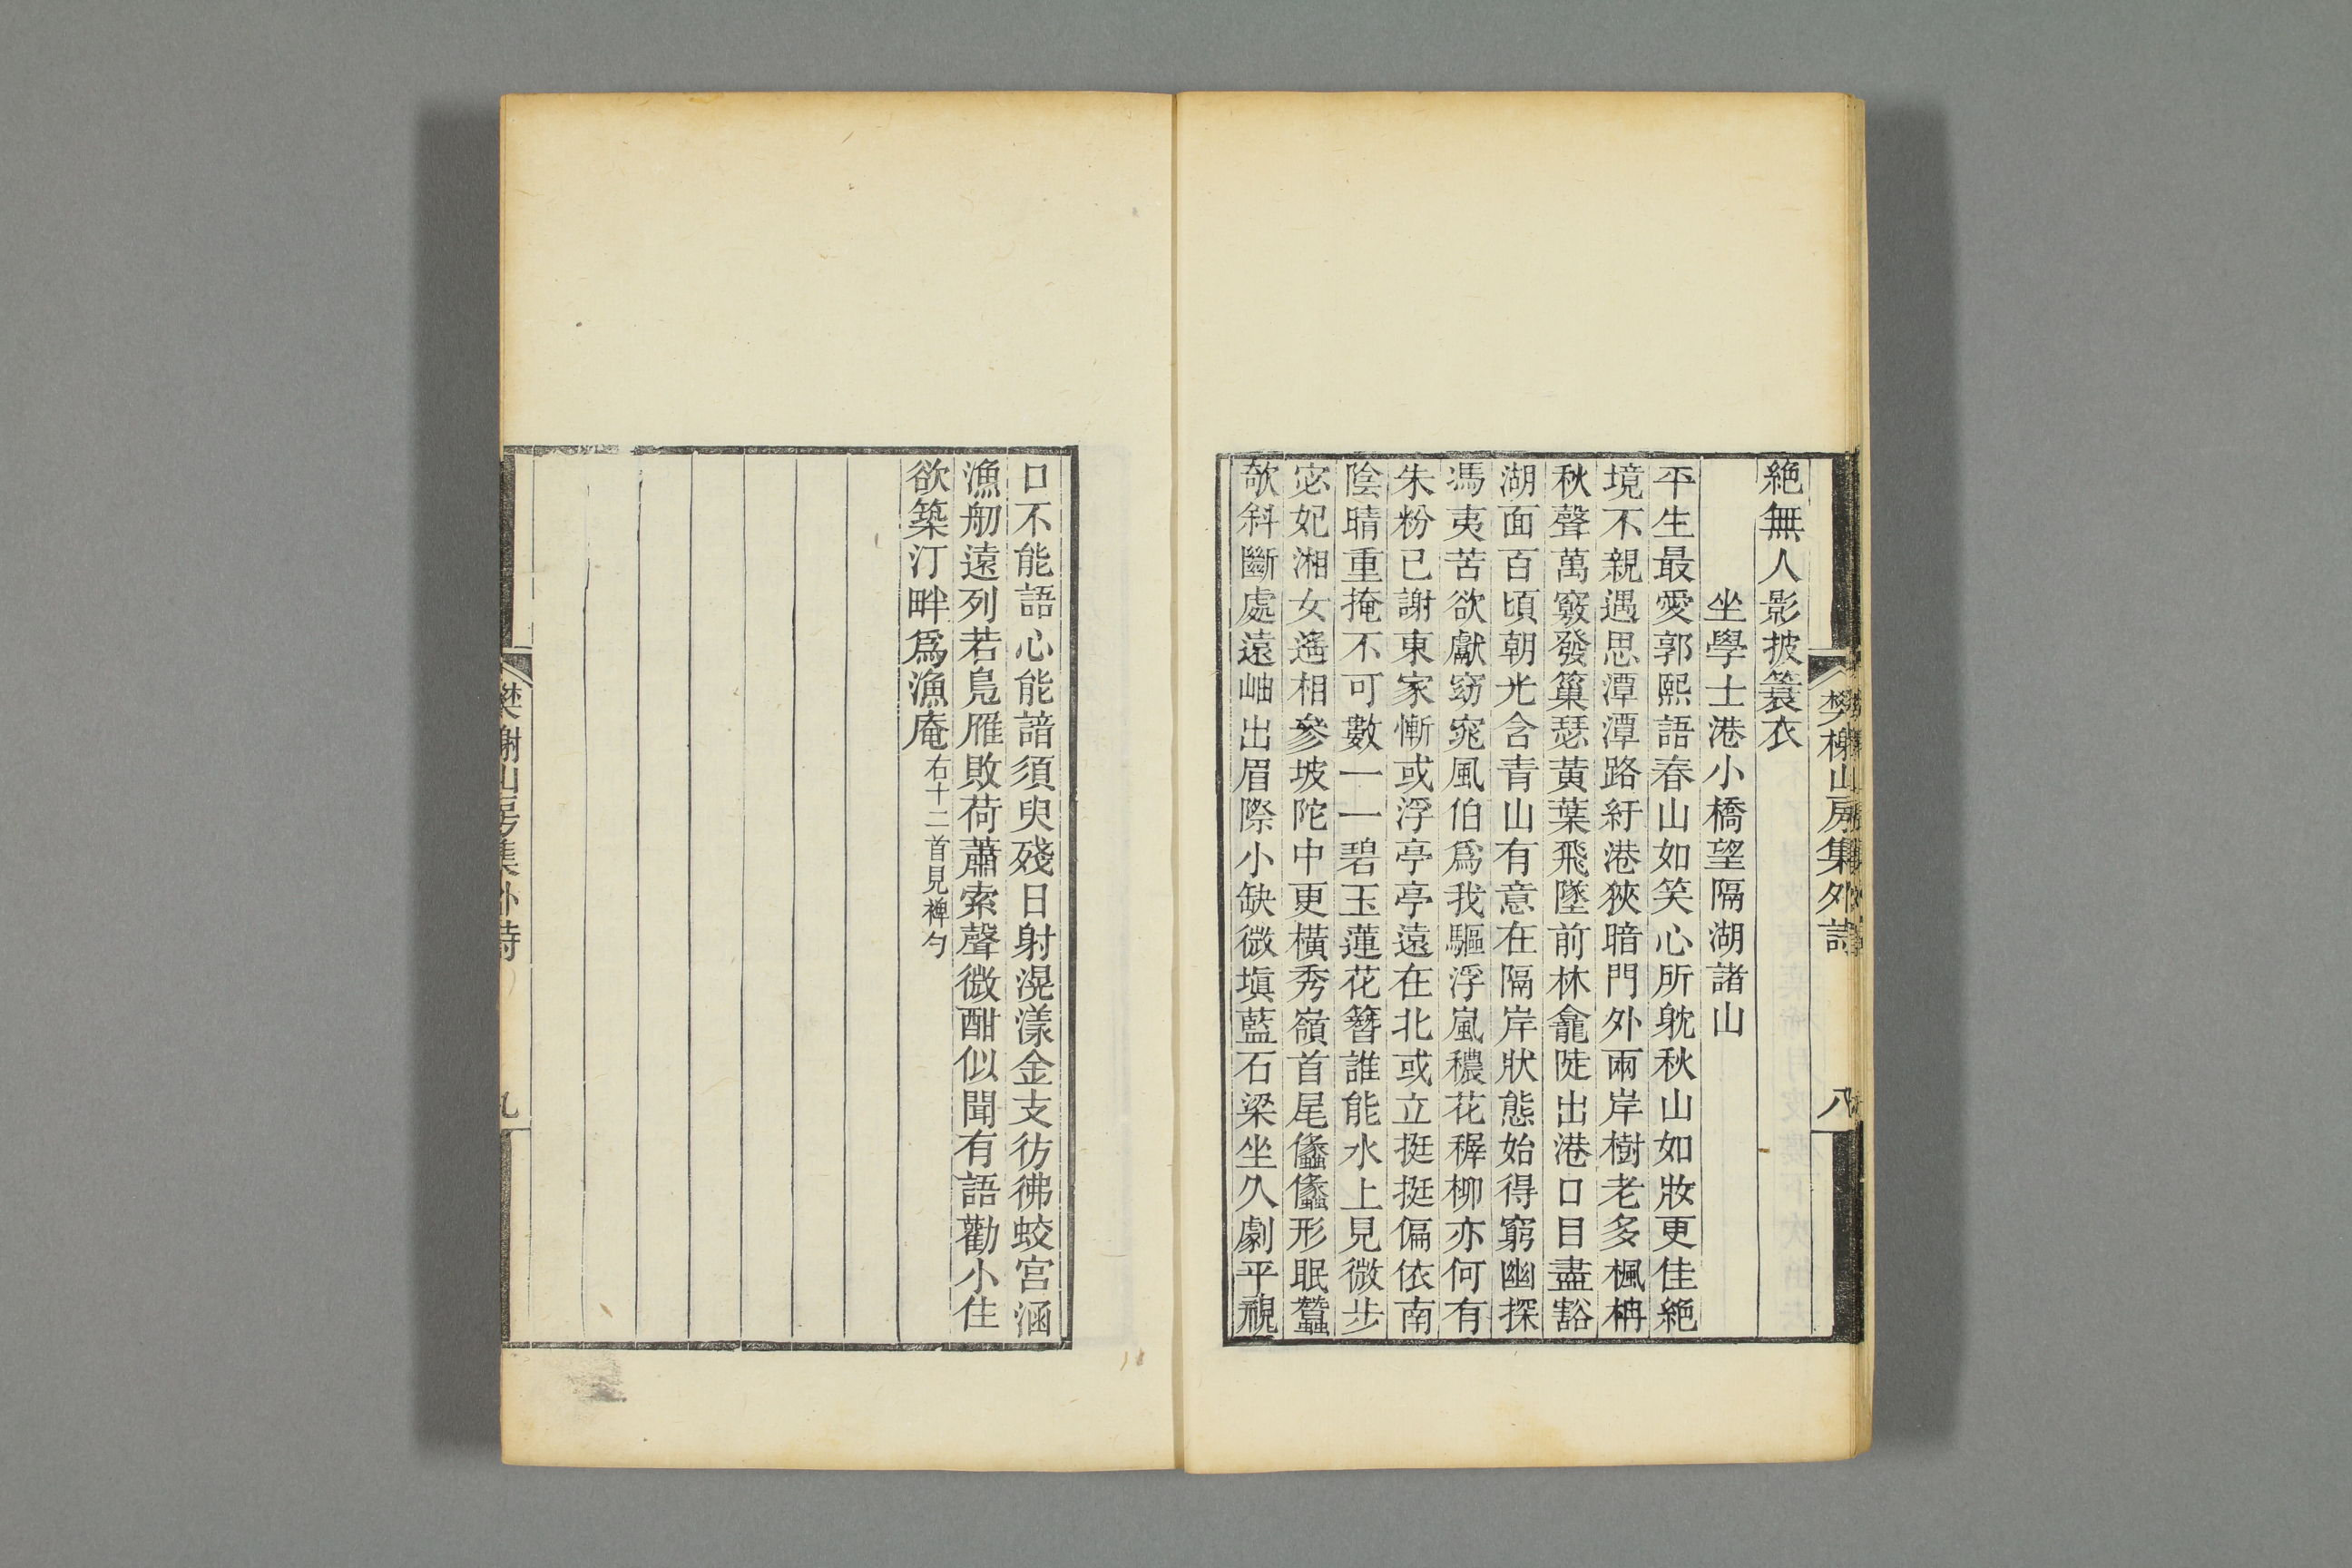 樊榭山房集外詩
八
絶無人影披簔衣
坐學士港小橋望隔湖諸山
平生最愛郭熙語春山如笑心所躭秋山如妝更佳絶
境不親遇思潭潭路紆港狹暗門外兩岸樹老多楓枏
秋聲萬竅發篥瑟黃葉飛墜前林龕陡出港口目盡豁
湖面百頃朝光含青山有意在隔岸狀態始得窮幽探
馮夷苦欲獻窈窕風伯爲我驅浮嵐穠花穉柳亦何有
朱粉已謝東家慚或浮亭亭遠在北或立挺挺偏依南
陰晴重掩不可數一一碧玉蓮花簪誰能水上見微步
宓妃湘女遙相參坡陀中更橫秀嶺首尾儽儽形眠蠶
欹斜斷處遠岫出眉際小缺微塡藍石梁坐久劇平視
口不能語心能諳須臾殘日射滉漾金支彷彿蛟宮涵
漁舠遠列若鳧雁敗荷蕭索聲微酣似聞有語勸小住
欲築汀畔爲漁庵右十二首見樿勺
樊榭山房集外詩
九